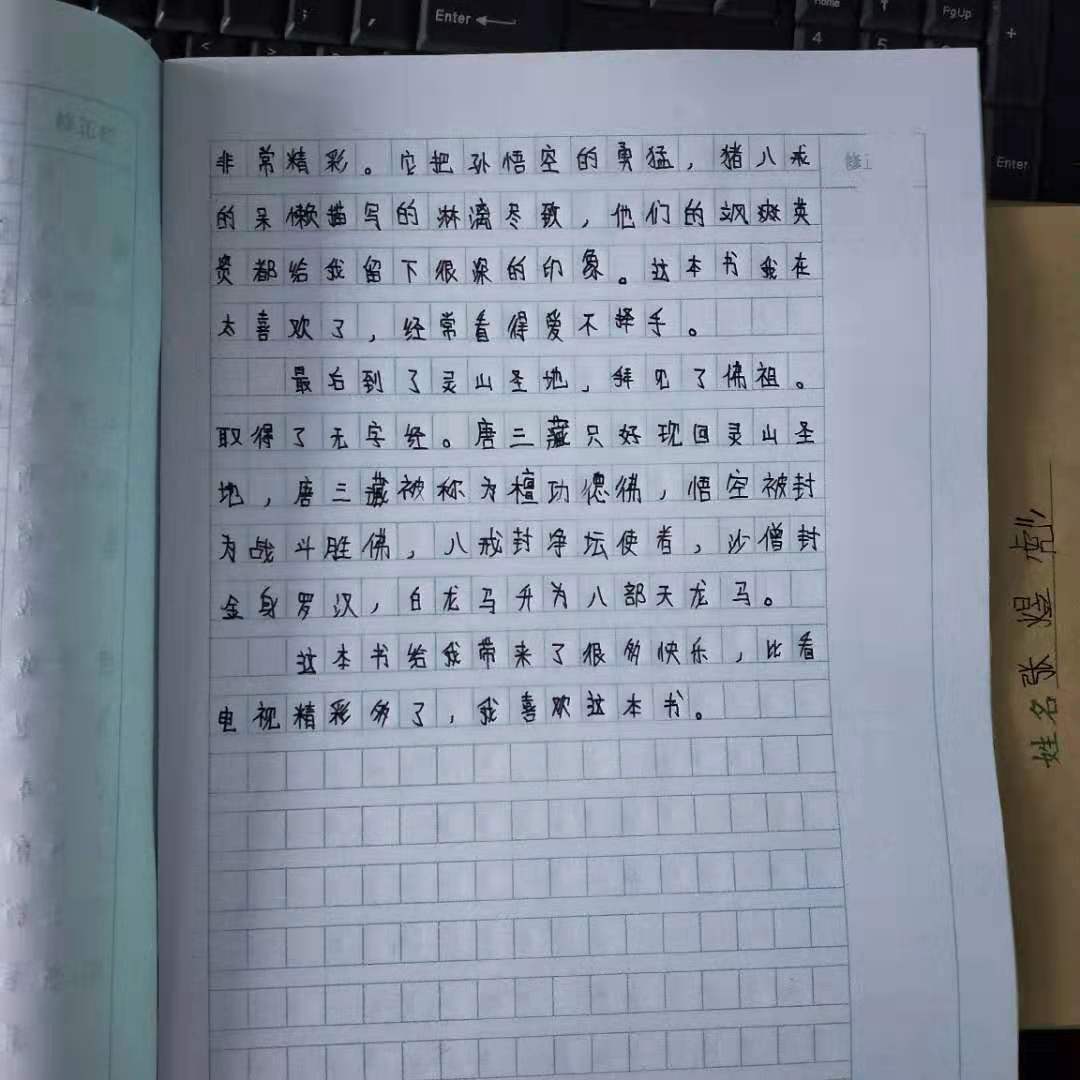 非常精彩。它把孙悟空的勇猛，猪八戒
的呆懒描写的淋漓尽致，他们的飒斑英
贵都给我留下很深的印象。这本书我在
太喜欢了，经常看得爱不择手。
最后到了灵山圣地，拜见了佛祖。
取得了无字经。唐三藏只好现回灵山圣
地，唐三藏被称为檀功德佛，悟空被封
为战斗胜佛，八戒封净坛使者，沙僧封
金身罗汉，白龙马升为八部天龙马。
这本书给我带来了很多快乐，比看
电视精彩多了，我喜欢这本书。
姓名 张煜彪
Enter
Home
PgUp
4
5
+
Enter